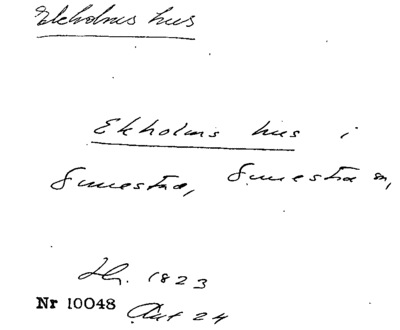 Ekholms hus
Ekholms hus i
Simestad, Simestad sn,
Jb. 1823
Nr 10048 Akt 24